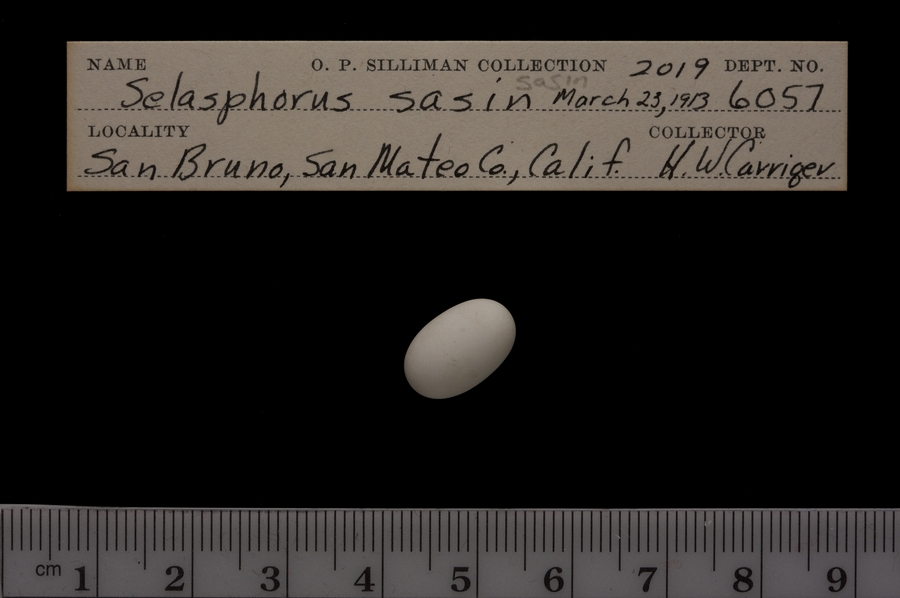 NAME O. P. SILLIMAN COLLECTION 2019 DEPT. NO.
sasin
Selasphorus sasin March 23, 1913 6057
LOCALITY COLLECTOR
San Bruno, San Mateo Co., Calif. H. W. Carriger
cm 1 2 3 4 5 6 7 8 9